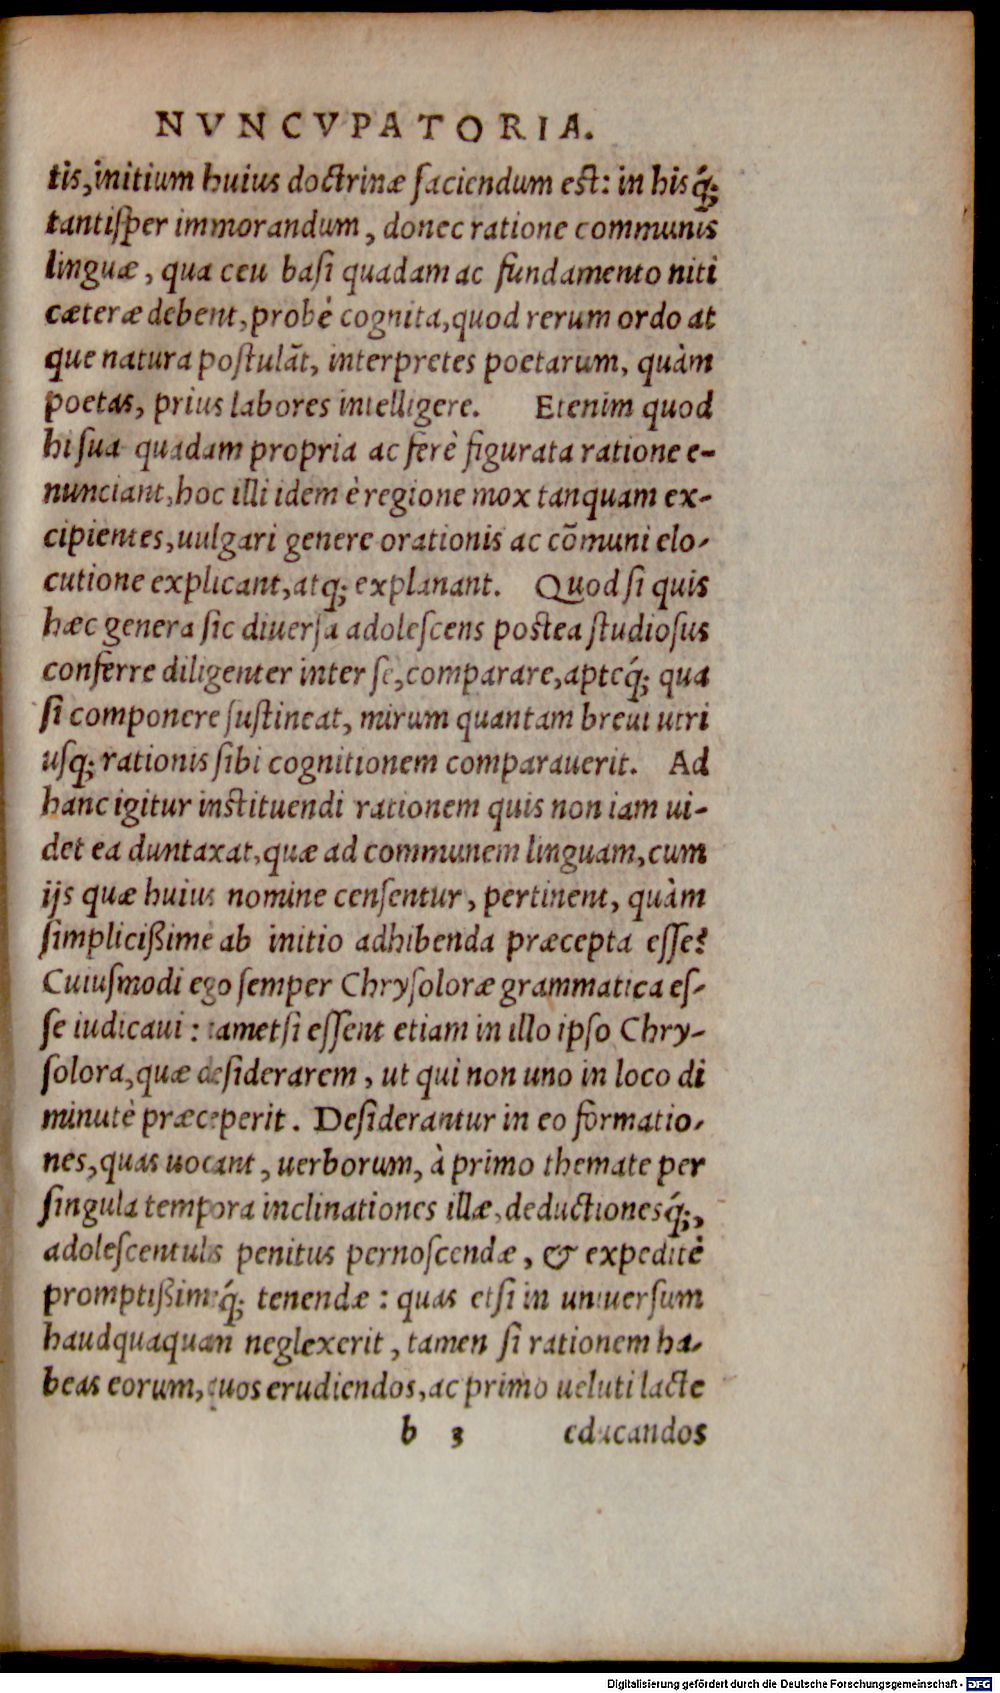 NVNCVPATORIA.
tis, initium huius doctrinæ faciendum est: in hisq́;
tantiſper immorandum, donec ratione communis
linguæ, qua ceu baſi quadam ac fundamento niti
cæteræ debent, probè cognita, quod rerum ordo at
que natura poſtulãt, interpretes poetarum, quàm
poetas, prius labores intelligere. Etenim quod
hi ſua quadam propria ac ferè figurata ratione e-
nunciant, hoc illi idem è regione mox tanquam ex-
cipientes, uulgari genere orationis ac cõmuni elo-
cutione explicant, atq; explanant. Quod ſi quis
hæc genera ſic diuerſa adoleſcens postea ſtudioſus
conferre diligenter inter ſe, comparare, apteq́; qua
ſi componere ſuſtineat, mirum quantam breui utri
uſq; rationis ſibi cognitionem comparauerit. Ad
hanc igitur instituendi rationem quis non iam ui-
det ea duntaxat, quæ ad communem linguam, cum
ijs quæ huius nomine cenſentur, pertinent, quàm
ſimplicißime ab initio adhibenda præcepta eſſe?
Cuiuſmodi ego ſemper Chryſoloræ grammatica eſ-
ſe iudicaui: tametſi eſſent etiam in illo ipſo Chry-
ſolora, quæ deſiderarem, ut qui non uno in loco di
minutè præceperit. Deſiderantur in eo formatio-
nes, quas uocant, uerborum, à primo themate per
ſingula tempora inclinationes illæ, deductionesq́;,
adoleſcentulis penitus pernoſcendæ, & expeditè
promptißimeq́; tenendæ: quas etſi in uniuerſum
haudquaquam neglexerit, tamen ſi rationem ha-
beas eorum, quos erudiendos, ac primo ueluti lacte
b 3 educandos
Digitalisierung gefördert durch die Deutsche Forschungsgemeinschaft - DFG